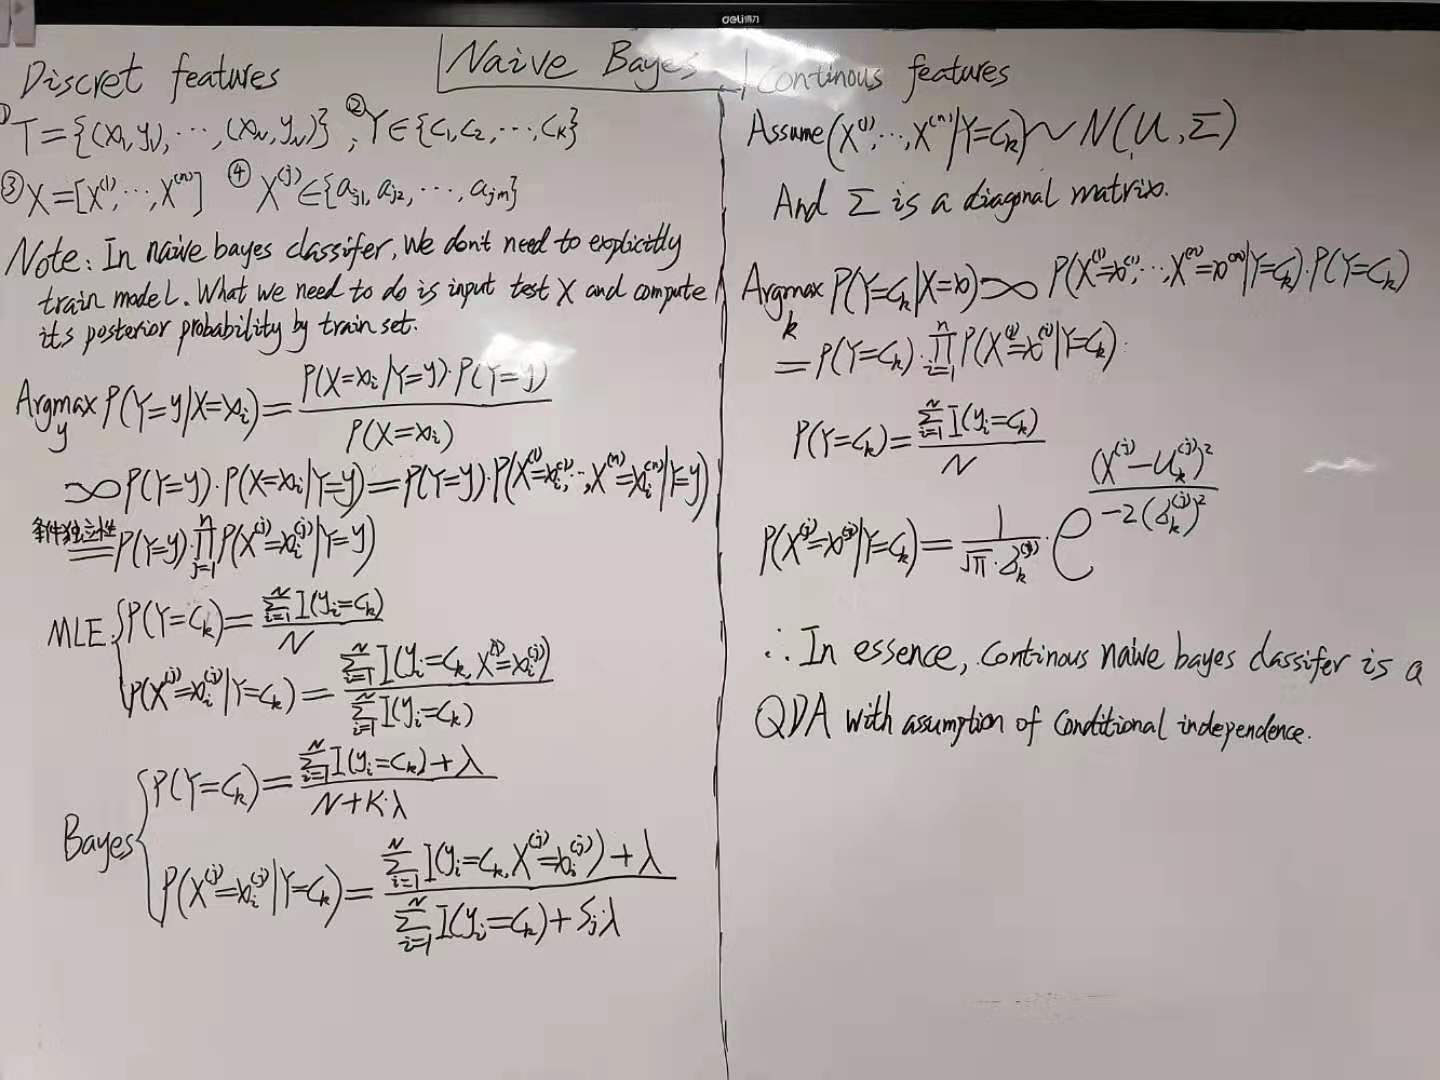 deli得力
Naive Bayes
Discret features
① T={(x₁,y₁),⋯,(x_N,y_N)} , ② Y∈{C₁,C₂,⋯,C_K}
③ X=[X⁽¹⁾,⋯,X⁽ⁿ⁾] ④ X⁽ʲ⁾∈{a_j1,a_j2,⋯,a_jm}
Note: In naive bayes classifer, We don't need to explicitly
train model. What we need to do is input test X and compute
it's posterior probability by train set.
Argmax_y P(Y=y|X=x_i)=P(X=x_i|Y=y)·P(Y=y)/P(X=x_i)
∝P(Y=y)·P(X=x_i|Y=y)=P(Y=y)·P(X⁽¹⁾=x_i⁽¹⁾,⋯,X⁽ⁿ⁾=x_i⁽ⁿ⁾|Y=y)
条件独立性 =P(Y=y)·∏_{j=1}^{n}P(X⁽ʲ⁾=x_i⁽ʲ⁾|Y=y)
MLE: { P(Y=C_k)=∑_{i=1}^{N}I(y_i=C_k)/N
P(X⁽ʲ⁾=x_i⁽ʲ⁾|Y=C_k)=∑_{i=1}^{N}I(y_i=C_k,X⁽ʲ⁾=x_i⁽ʲ⁾)/∑_{i=1}^{N}I(y_i=C_k)
Bayes { P(Y=C_k)=(∑_{i=1}^{N}I(y_i=C_k)+λ)/(N+K·λ)
P(X⁽ʲ⁾=x_i⁽ʲ⁾|Y=C_k)=(∑_{i=1}^{N}I(y_i=C_k,X⁽ʲ⁾=x_i⁽ʲ⁾)+λ)/(∑_{i=1}^{N}I(y_i=C_k)+S_jλ)
Continous features
Assume (X⁽¹⁾,⋯,X⁽ⁿ⁾|Y=C_k)~N(U,Σ)
And Σ is a diagonal matrix.
Argmax_k P(Y=C_k|X=x)∝P(X⁽¹⁾=x⁽¹⁾,⋯,X⁽ⁿ⁾=x⁽ⁿ⁾|Y=C_k)·P(Y=C_k)
=P(Y=C_k)·∏_{i=1}^{n}P(X⁽ʲ⁾=x⁽ⁱ⁾|Y=C_k).
P(Y=C_k)=∑_{i=1}^{N}I(y_i=C_k)/N
P(X⁽ʲ⁾=x⁽ʲ⁾|Y=C_k)=1/(√π·δ_k⁽ʲ⁾)·e^{(X⁽ʲ⁾-U_k⁽ʲ⁾)²/-2(δ_k⁽ʲ⁾)²}
∴In essence, continous naive bayes classifer is a
QDA with assumption of conditional independence.